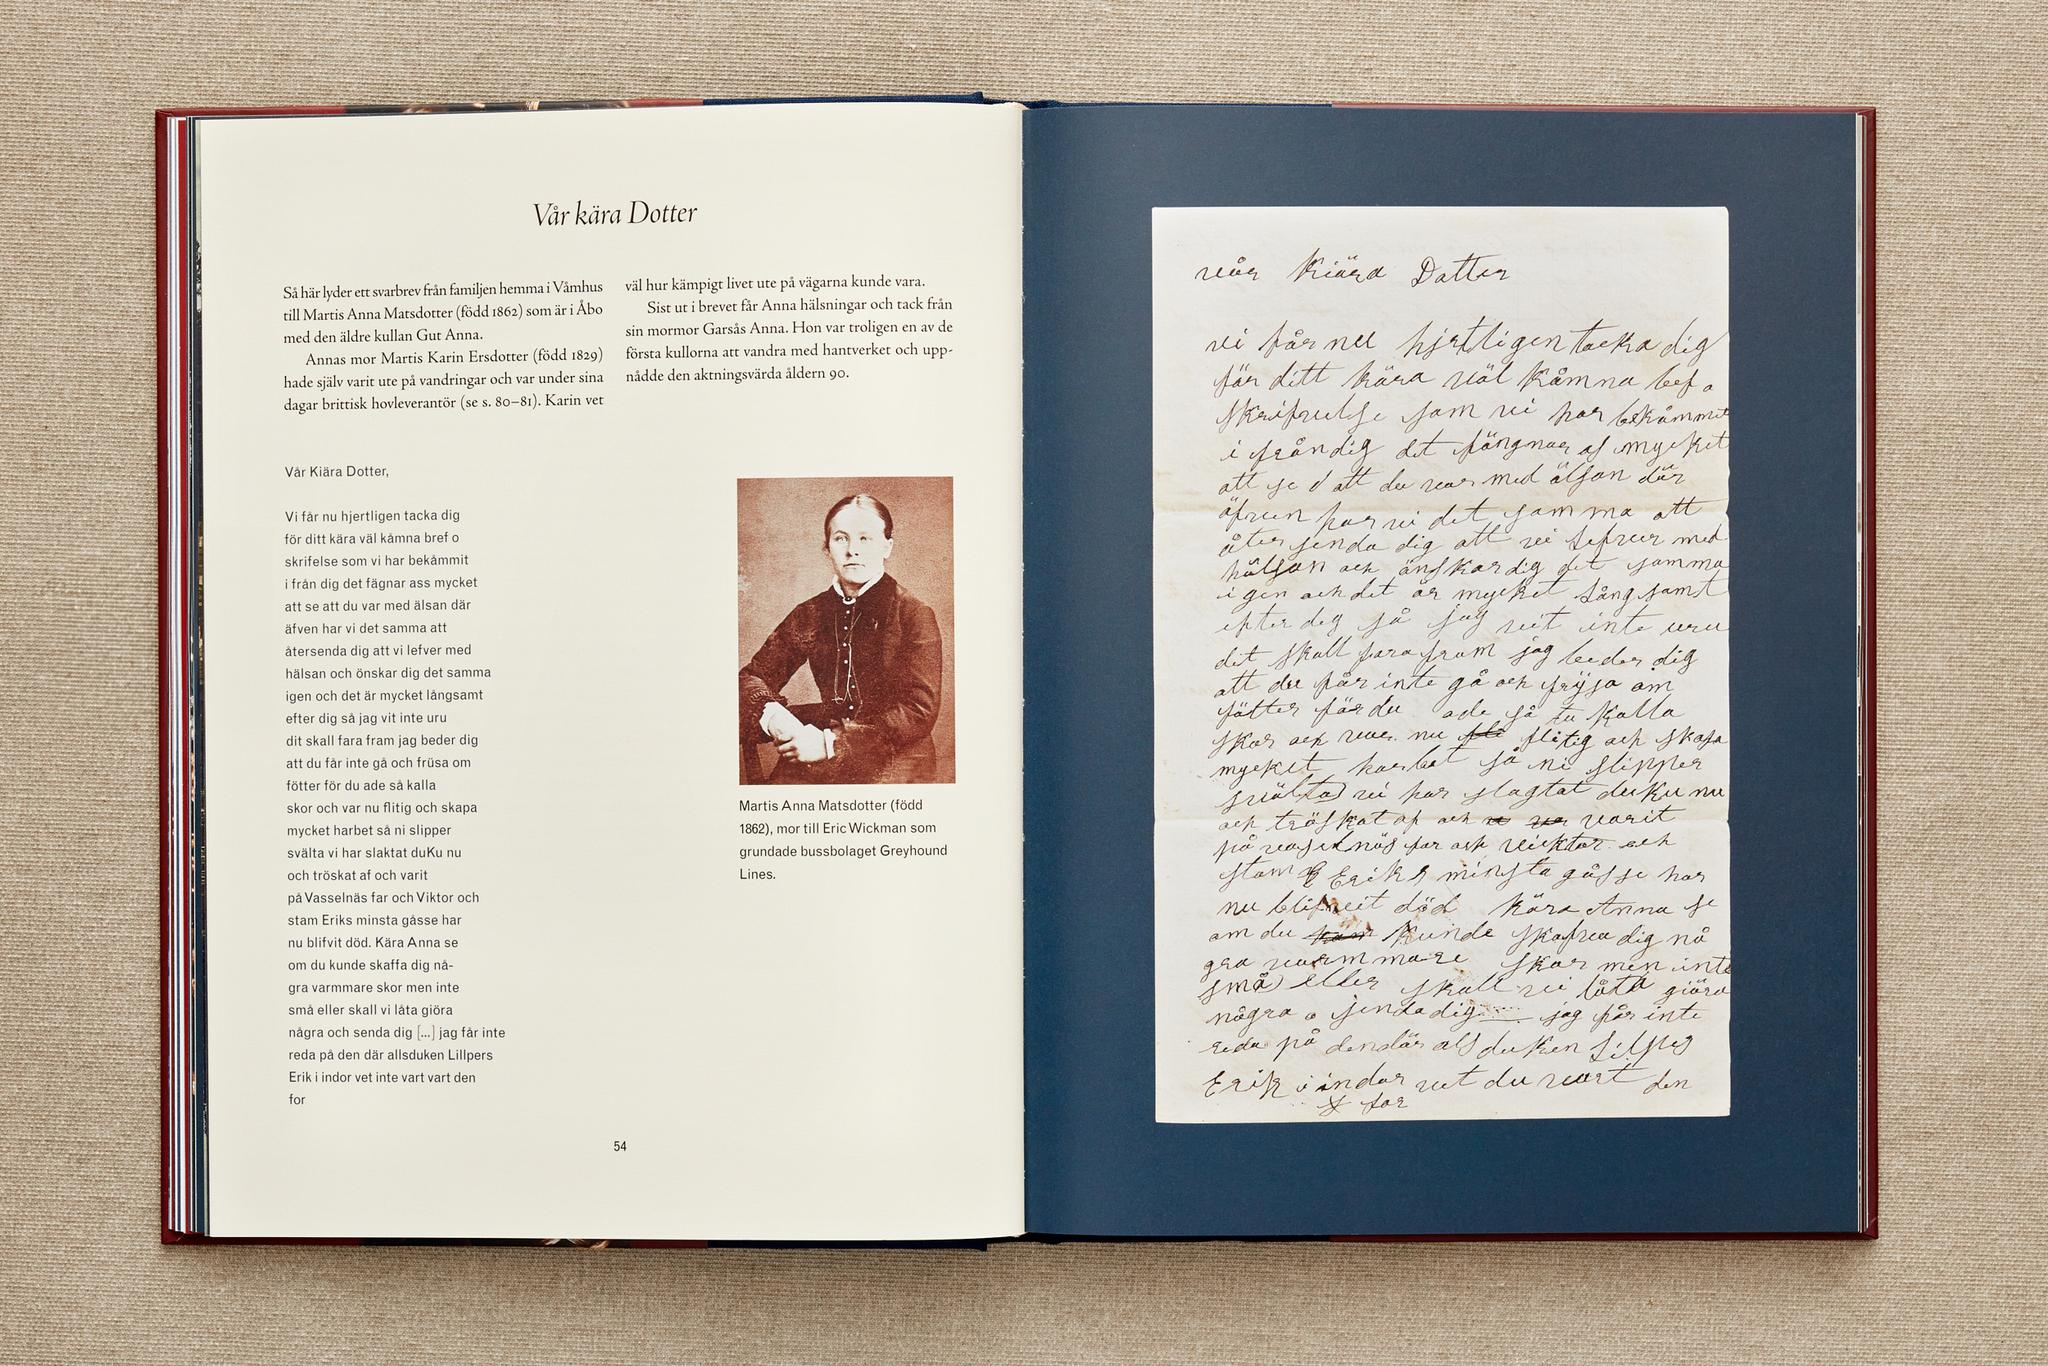 Vår kära Dotter
Så här lyder ett svarbrev från familjen hemma i Våmhus
till Martis Anna Matsdotter (född 1862) som är i Åbo
med den äldre kullan Gut Anna.
Annas mor Martis Karin Ersdotter (född 1829)
hade själv varit ute på vandringar och var under sina
dagar brittisk hovleverantör (se s. 80–81). Karin vet
väl hur kämpigt livet ute på vägarna kunde vara.
Sist ut i brevet får Anna hälsningar och tack från
sin mormor Garsås Anna. Hon var troligen en av de
första kullorna att vandra med hantverket och upp-
nådde den aktningsvärda åldern 90.
Vår Kiära Dotter,
Vi får nu hjertligen tacka dig
för ditt kära väl kåmna bref o
skrifelse som vi har bekåmmit
i från dig det fägnar ass mycket
att se att du var med älsan där
äfven har vi det samma att
återsenda dig att vi lefver med
hälsan och önskar dig det samma
igen och det är mycket långsamt
efter dig så jag vit inte uru
dit skall fara fram jag beder dig
att du får inte gå och früsa om
fötter för du ade så kalla
skor och var nu flitig och skapa
mycket harbet så ni slipper
svälta vi har slaktat duKu nu
och tröskat af och varit
på Vasselnäs far och Viktor och
stam Eriks minsta gåsse har
nu blifvit död. Kära Anna se
om du kunde skaffa dig nå-
gra varmmare skor men inte
små eller skall vi låta giöra
några och senda dig [...] jag får inte
reda på den där allsduken Lillpers
Erik i indor vet inte vart vart den
for
Martis Anna Matsdotter (född
1862), mor till Eric Wickman som
grundade bussbolaget Greyhound
Lines.
54
vår Kiära Dotter
vi får nu hjertligen tacka dig
för ditt kära väl kåmna bef o
skrifvelse som vi har bekåmmit
i från dig det fängnar as mycket
att se att du var med älsan där
äfven har vi det samma att
åter senda dig att vi lefver med
hälsan och önskar dig det samma
igen och det är mycket långsamt
efter dig så jag vet inte uru
dit skall fara fram jag beder dig
att du får inte gå och frÿsa om
fötter för du ade så kalla
skor och var nu flitig och skafa
mycket harbet så ni slipper
svälta vi har slagtat duku nu
och tröskat af och varit
på vaselnäs far och vicktor och
stam Eriks minsta gåsse har
nu blifveit död kära Anna se
om du kunde skafva dig nå
gra varmmare skor men inte
små eller skall vi låta giöra
några o senda dig jag får inte
reda på den där als duken Lilpers
Erik i indor vet du vart den
for